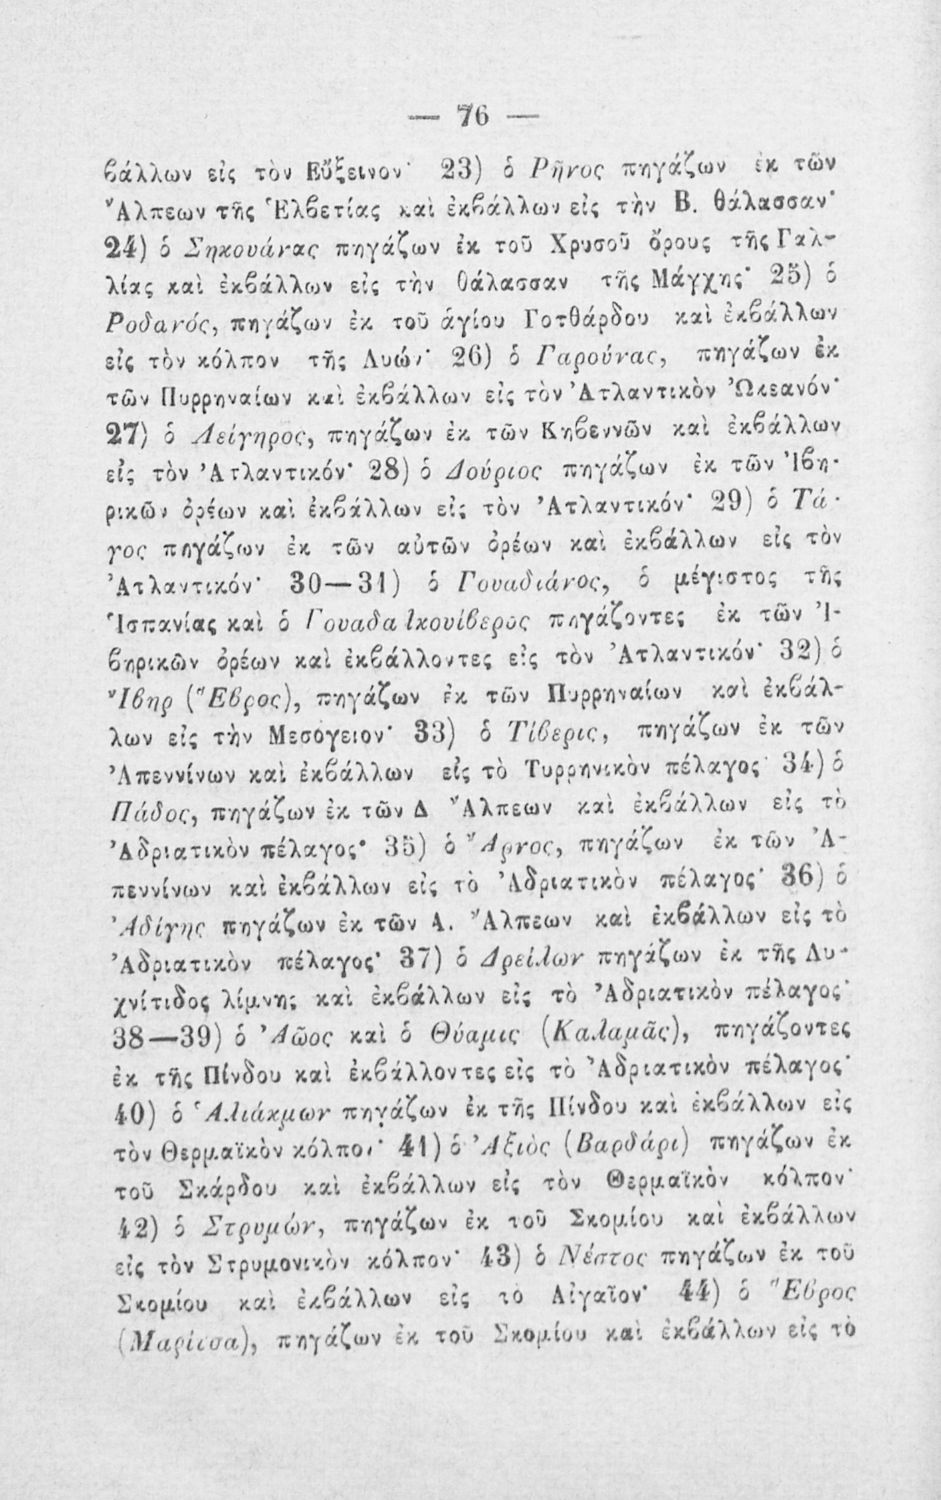 — 76 —
βάλλων εἰς τὸν Εὔξεινον· 23) ὁ Ῥῆνος πηγάζων ἐκ τῶν
Ἄλπεων τῆς Ἑλβετίας καὶ ἐκβάλλων εἰς τὴν Β. θάλασσαν·
24) ὁ Σηκουάνας πηγάζων ἐκ τοῦ Χρυσοῦ ὄρους τῆς Γαλ-
λίας καὶ ἐκβάλλων εἰς τὴν θάλασσαν τῆς Μάγχης· 25) ὁ
Ροδανός, πηγάζων ἐκ τοῦ ἁγίου Γοτθάρδου καὶ ἐκβάλλων
εἰς τὸν κόλπον τῆς Λυών· 26) ὁ Γαρούνας, πηγάζων ἐκ
τῶν Πυρρηναίων καὶ ἐκβάλλων εἰς τὸν Ἀτλαντικὸν Ὠκεανόν·
27) ὁ Λείγηρος, πηγάζων ἐκ τῶν Κηβεννῶν καὶ ἐκβάλλων
εἰς τὸν Ἀτλαντικόν· 28) ὁ Δούριος πηγάζων ἐκ τῶν Ἰβη-
ρικῶν ὀρέων καὶ ἐκβάλλων εἰς τὸν Ἀτλαντικόν· 29) ὁ Τά-
γος πηγάζων ἐκ τῶν αὐτῶν ὀρέων καὶ ἐκβάλλων εἰς τὸν
Ἀτλαντικόν· 30—31) ὁ Γουαδιάνος, ὁ μέγιστος τῆς
Ἱσπανίας καὶ ὁ Γουαδαλκουίβερος πηγάζοντες ἐκ τῶν Ἰ-
βηρικῶν ὀρέων καὶ ἐκβάλλοντες εἰς τὸν Ἀτλαντικόν· 32) ὁ
Ἴβηρ (Ἕβρος), πηγάζων ἐκ τῶν Πυρρηναίων καὶ ἐκβάλ-
λων εἰς τὴν Μεσόγειον· 33) ὁ Τίβερις, πηγάζων ἐκ τῶν
Ἀπεννίνων καὶ ἐκβάλλων εἰς τὸ Τυρρηνικὸν πέλαγος· 34) ὁ
Πάδος, πηγάζων ἐκ τῶν Δ Ἄλπεων καὶ ἐκβάλλων εἰς τὸ
Ἀδριατικὸν πέλαγος· 35) ὁ Ἄρνος, πηγάζων ἐκ τῶν Ἀ-
πεννίνων καὶ ἐκβάλλων εἰς τὸ Ἀδριατικὸν πέλαγος· 36) ὁ
Ἀδίγης πηγάζων ἐκ τῶν Α. Ἄλπεων καὶ ἐκβάλλων εἰς τὸ
Ἀδριατικὸν πέλαγος· 37) ὁ Δρείλων πηγάζων ἐκ τῆς Λυ-
χνίτιδος λίμνης καὶ ἐκβάλλων εἰς τὸ Ἀδριατικὸν πέλαγος·
38—39) ὁ Ἀῶος καὶ ὁ Θύαμις (Καλαμᾶς), πηγάζοντες
ἐκ τῆς Πίνδου καὶ ἐκβάλλοντες εἰς τὸ Ἀδριατικὸν πέλαγος·
40) ὁ Ἁλιάκμων πηγάζων ἐκ τῆς Πίνδου καὶ ἐκβάλλων εἰς
τὸν Θερμαϊκὸν κόλπον· 41) ὁ Ἀξιὸς (Βαρδάρι) πηγάζων ἐκ
τοῦ Σκάρδου καὶ ἐκβάλλων εἰς τὸν Θερμαϊκὸν κόλπον·
42) ὁ Στρυμών, πηγάζων ἐκ τοῦ Σκομίου καὶ ἐκβάλλων
εἰς τὸν Στρυμονικὸν κόλπον· 43) ὁ Νέστος πηγάζων ἐκ τοῦ
Σκομίου καὶ ἐκβάλλων εἰς τὸ Αἰγαῖον· 44) ὁ Ἕβρος
(Μαρίτσα), πηγάζων ἐκ τοῦ Σκομίου καὶ ἐκβάλλων εἰς τὸ